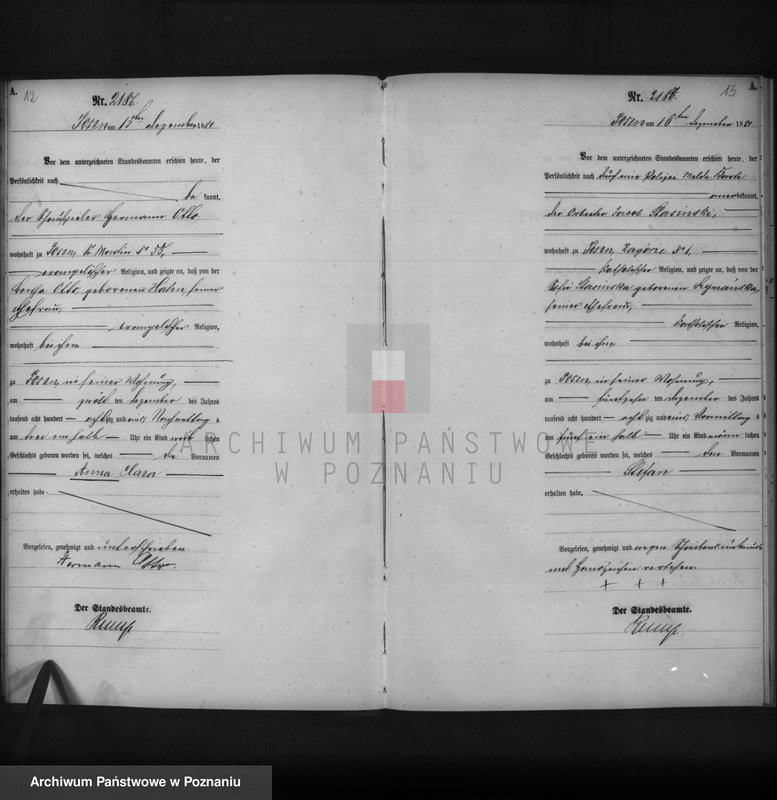 A.
12
Nr. 2186.
Posen am 15ten Dezember 1881
Vor dem unterzeichneten Standesbeamten erschien heute, der
Persönlichkeit nach
be kannt,
der Schutzteiler Hermann Otto
wohnhaft zu Posen, St. Martin No
evangelischer Religion, und zeigte an, daß von der
Bertha Otto, geborenen Hahn, seiner
Ehefrau,
evangelischer Religion,
wohnhaft bei ihm
zu Posen, in seiner Wohnung,
am ten Dezember des Jahres
tausend acht hundert achtzig und eins Nachmittag s
um drei ein halb Uhr ein Kind weib lichen
Geschlechts geboren worden sei, welches die Vornamen
Anna Clara
erhalten habe
Vorgelesen, genehmigt und unterschrieben
Hermann Otto.
Der Standesbeamte.
A.
13
Nr. 2187.
Posen am 16ten Dezember 1881
Vor dem unterzeichneten Standesbeamten erschien heute, der
Persönlichkeit nach durch eine Polizei Melde Karte
anerkannt,
der Arbeiter Jacob Stasinski,
wohnhaft zu Posen, Zagorze No 1,
katholischer Religion, und zeigte an, daß von der
Sofie Stasinska geborenen Szymanska
seiner Ehefrau,
katholischer Religion,
wohnhaft bei ihm
zu Posen, in seiner Wohnung,
am fünfzehn ten Dezember des Jahres
tausend acht hundert achtzig und eins Vormittag s
um fünf ein halb Uhr ein Kind männ lichen
Geschlechts geboren worden sei, welches den Vornamen
Stefan
erhalten habe,
Vorgelesen, genehmigt und wegen Schreibensunkunde
mit Handzeichen versehen
+ + +
Der Standesbeamte.
ARCHIWUM PAŃSTWOWE
W POZNANIU
Archiwum Państwowe w Poznaniu